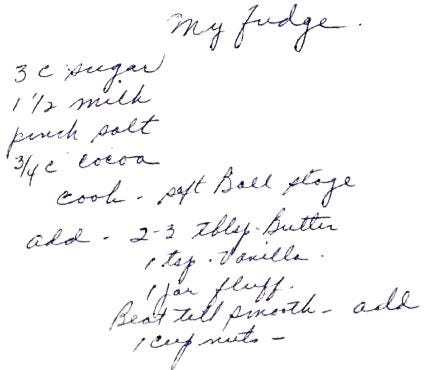 My Fudge.
3 c sugar
1 1/2 milk
pinch salt
3/4 c cocoa
cook - soft Ball stage
add - 2-3 tblsp. Butter
1 tsp. vanilla.
1 jar fluff.
Beat till smooth - add
1 cup nuts -